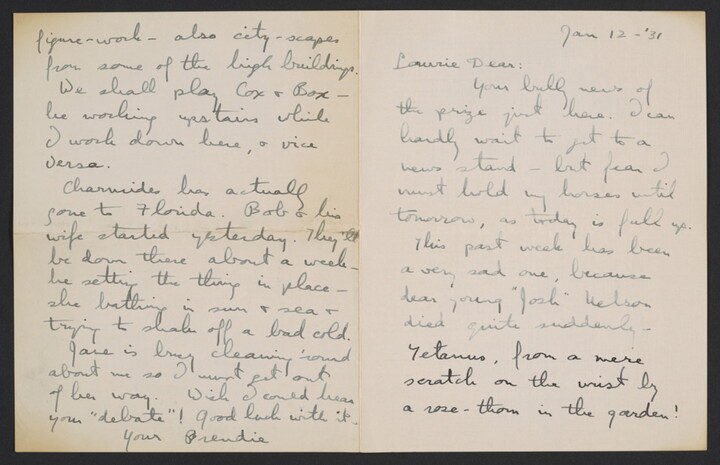 Jan 12 - '31
Laurie Dear:
Your bully news of
the prize just here. I can
hardly wait to get to a
news stand - but fear I
must hold my horses until
tomorrow, as today is full up.
This past week has been
a very sad one, because
dear young "Josh" Nelson
died quite suddenly -
Tetanus, from a mere
scratch on the wrist by
a rose-thorn in the garden!
figure-work - also city-scapes
from some of the high buildings.
We shall play Cox & Box -
he working upstairs while
I work down here, & vice
versa.
Charmides has actually
gone to Florida. Bob & his
wife started yesterday. They'll
be down there about a week -
he setting the thing in place -
she bathing in sun & sea &
trying to shake off a bad cold.
Jane is busy cleaning 'round
about me so I must get out
of her way. Wish I could hear
your "debate"! Good luck with it -
Your Brendie